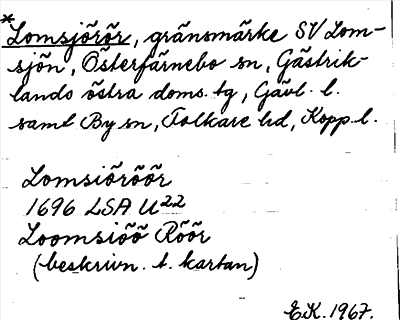 *Lomsjörör, gränsmärke SV Lom-
sjön, Österfärnebo sn, Gästrik-
lands östra doms. tg, Gävl. l.
samt By sn, Folkare hd, Kopp. l.
Lomsiöröör
1696 LSA U22
Loomsiöö Röör
(beskrivn. t. kartan)
E.K. 1967.